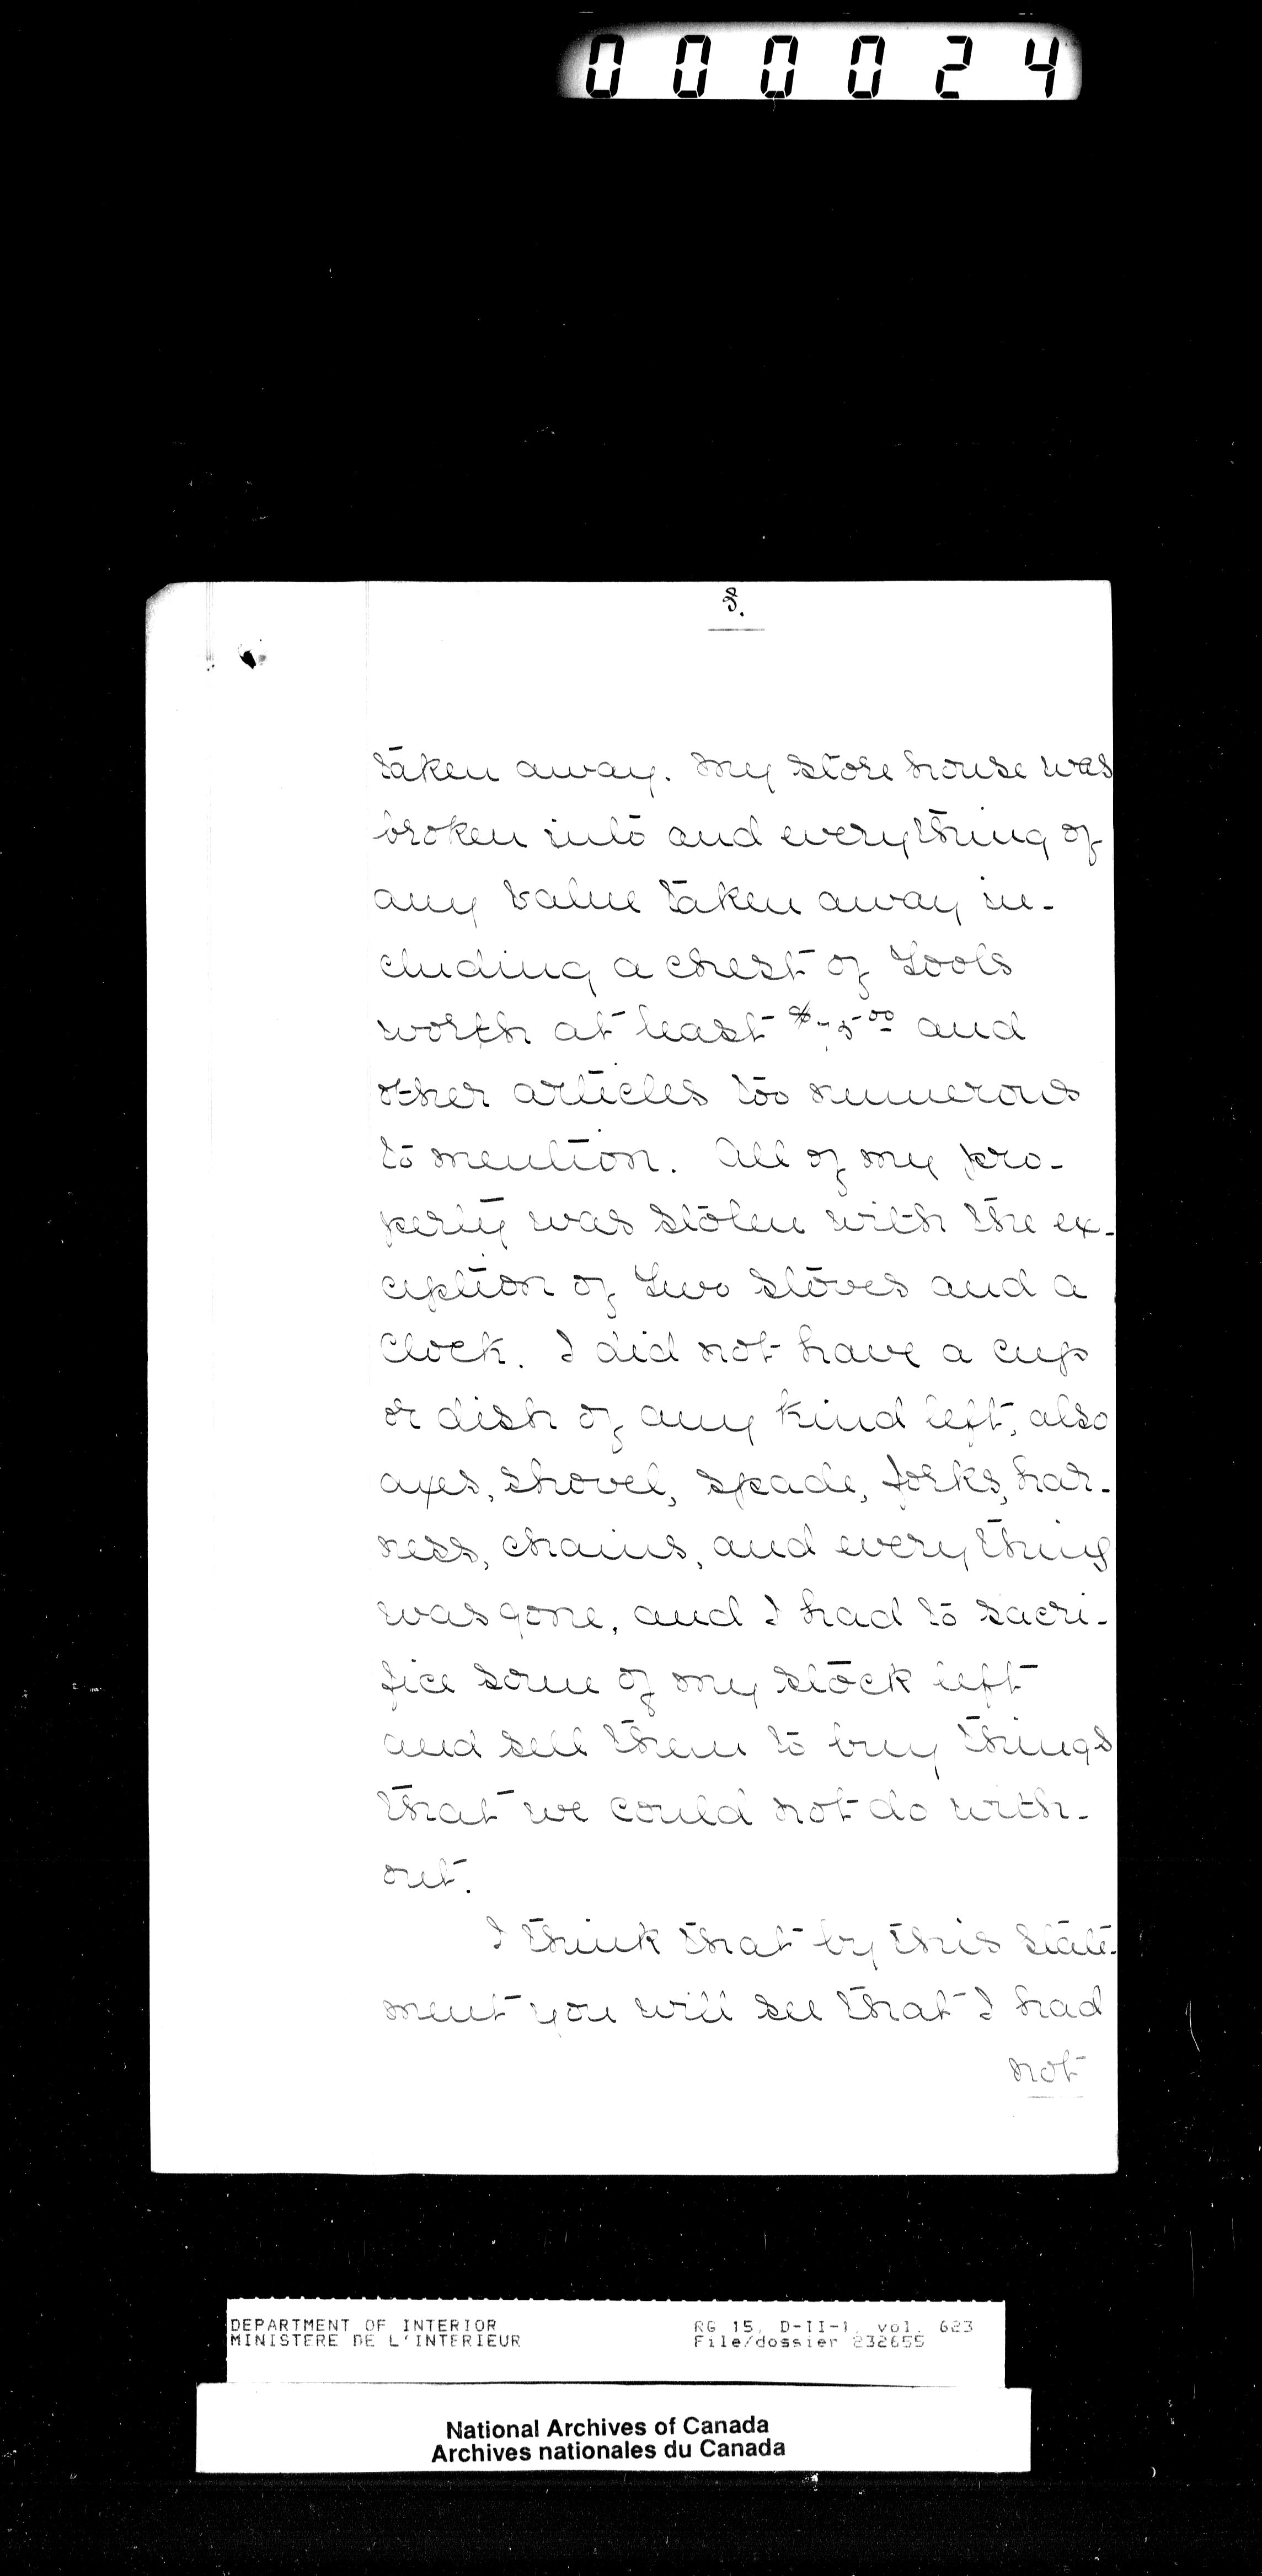 000024
8.
taken away. My store house was
broken into and everything of
any value taken away in-
cluding a chest of Tools
worth at least $75 00 and
other articles too numerous
to mention. All of my pro-
perty was stolen with the ex-
ception of two stoves and a
Clock. I did not have a cup
or dish of any kind left, also
axes, shovel, spade, forks, har-
ness, chains, and everything
was gone, and I had to sacri-
fice some of my stock left
and sell them to buy things
that we could not do with-
out.
I think that by this state-
ment you will see that I had
not
DEPARTMENT OF INTERIOR RG 15, D-II-1, vol. 623
MINISTERE DE L'INTERIEUR File/dossier 232655
National Archives of Canada
Archives nationales du Canada